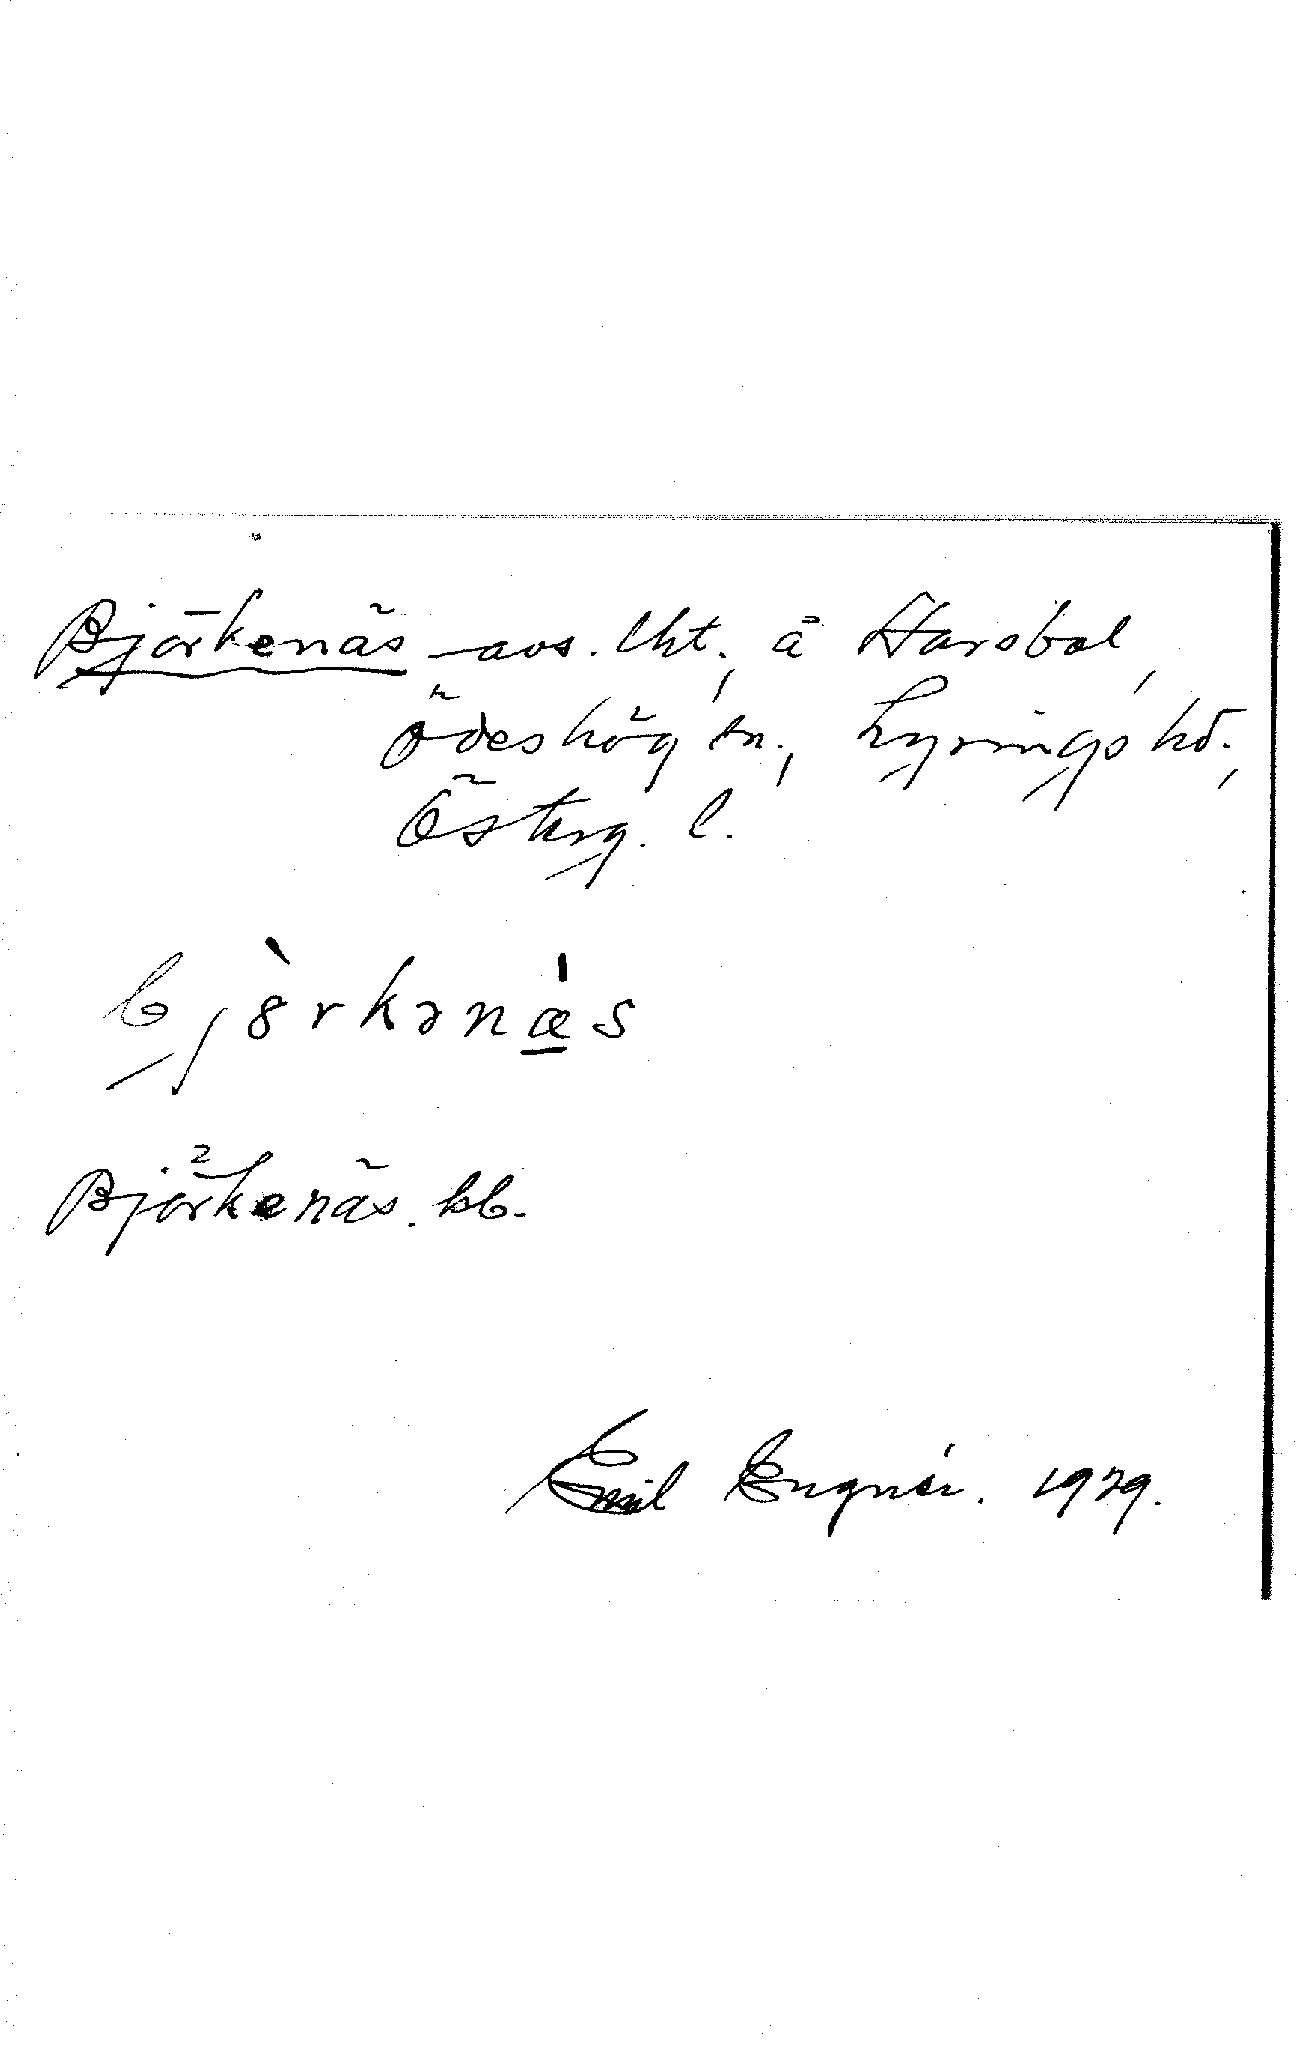 Björkenäs - avs. lht., å Harsbol,
Ödeshög sn., Lysings hd.,
Österg. l.
bjò̈rkənä́s
Björkenäs. hb.
Emil Engnér. 1929.